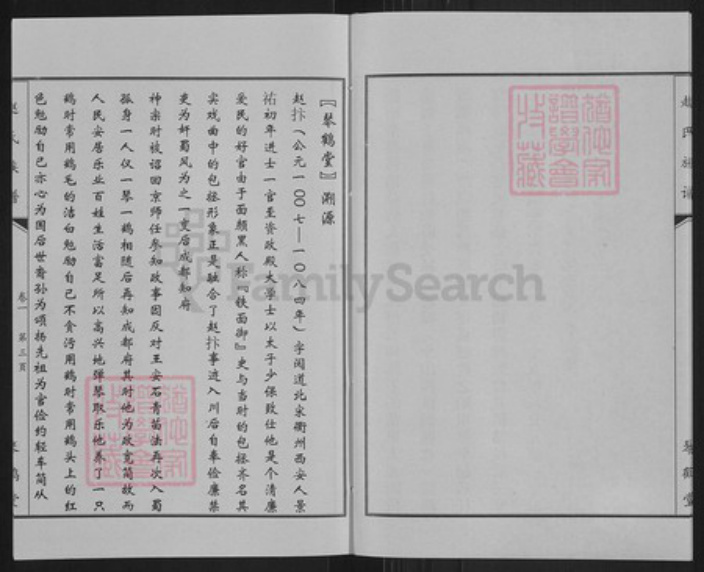 『琴鹤堂』溯源
赵抃（公元一〇〇七—一〇八四年）字阅道北宋衢州西安人景
祐初年进士一官至资政殿大学士以太子少保致仕他是个清廉
爱民的好官由于面颜黑人称『铁面御』史与当时的包拯齐名其
实戏曲中的包拯形象正是融合了赵抃事迹入川后自奉俭廉禁
吏为奸蜀风为之一变后成都知府
神宗时被诏回京师任参知政事因反对王安石青苗法再次入蜀
孤身一人仅一琴一鹤相随后再知成都府其时他为政宽简故而
人民安居乐业百姓生活富足所以高兴地弹琴取乐他养了一只
鹤时常用鹤毛的洁白勉励自己不贪污用鹤时常用鹤头上的红
色勉励自己赤心为国后世裔孙为颂扬先祖为官俭约轻车简从
赵氏族谱
卷一 第三页
琴鹤堂
赵氏族谱
琴鹤堂
FamilySearch